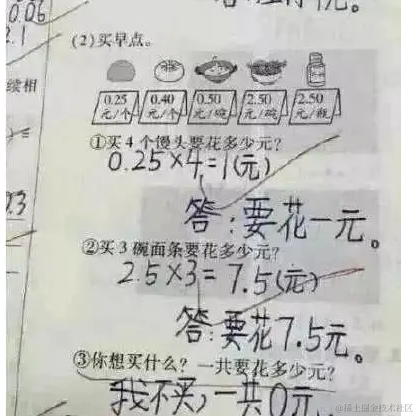 0.06
2.1
(2)买早点。
续相
0.25 元/个 0.40 元/个 0.50 元/碗 2.50 元/碗 2.50 元/瓶
①买4个馒头要花多少元?
0.25×4=1(元)
答:要花一元。
②买3碗面条要花多少元?
2.5×3=7.5(元)
答:要花7.5元。
③你想买什么?一共要花多少元?
我不买,一共0元。
@稀土掘金技术社区